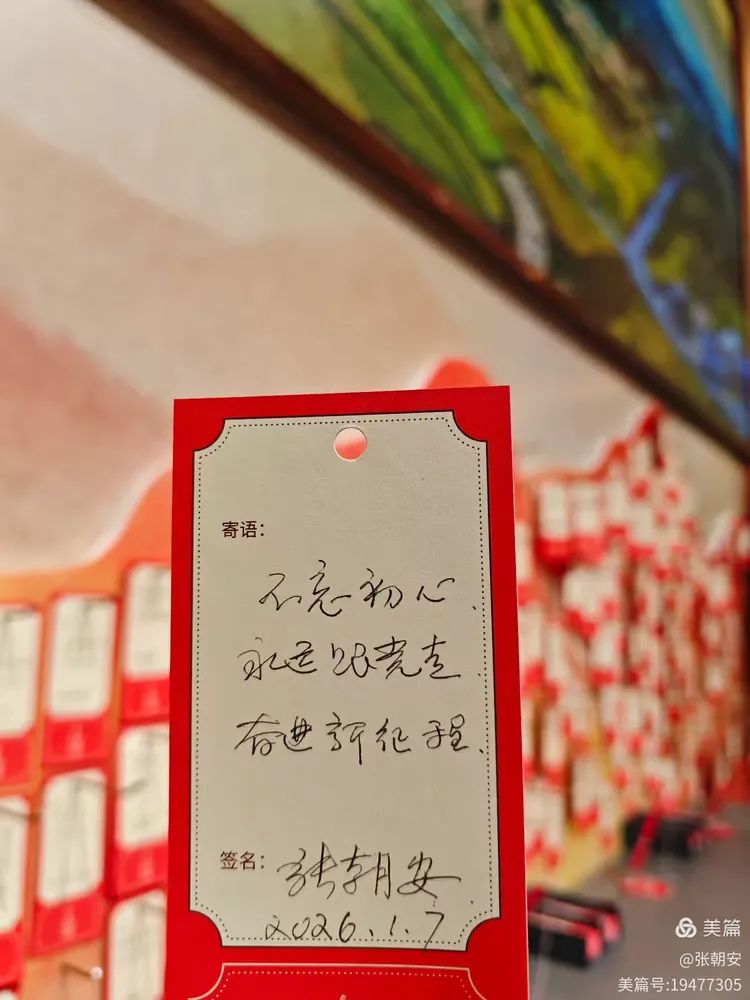 寄语：
不忘初心、
永远跟党走、
奋进新征程、
签名：张朝安
2026.1.7
美篇
@张朝安
美篇号:19477305